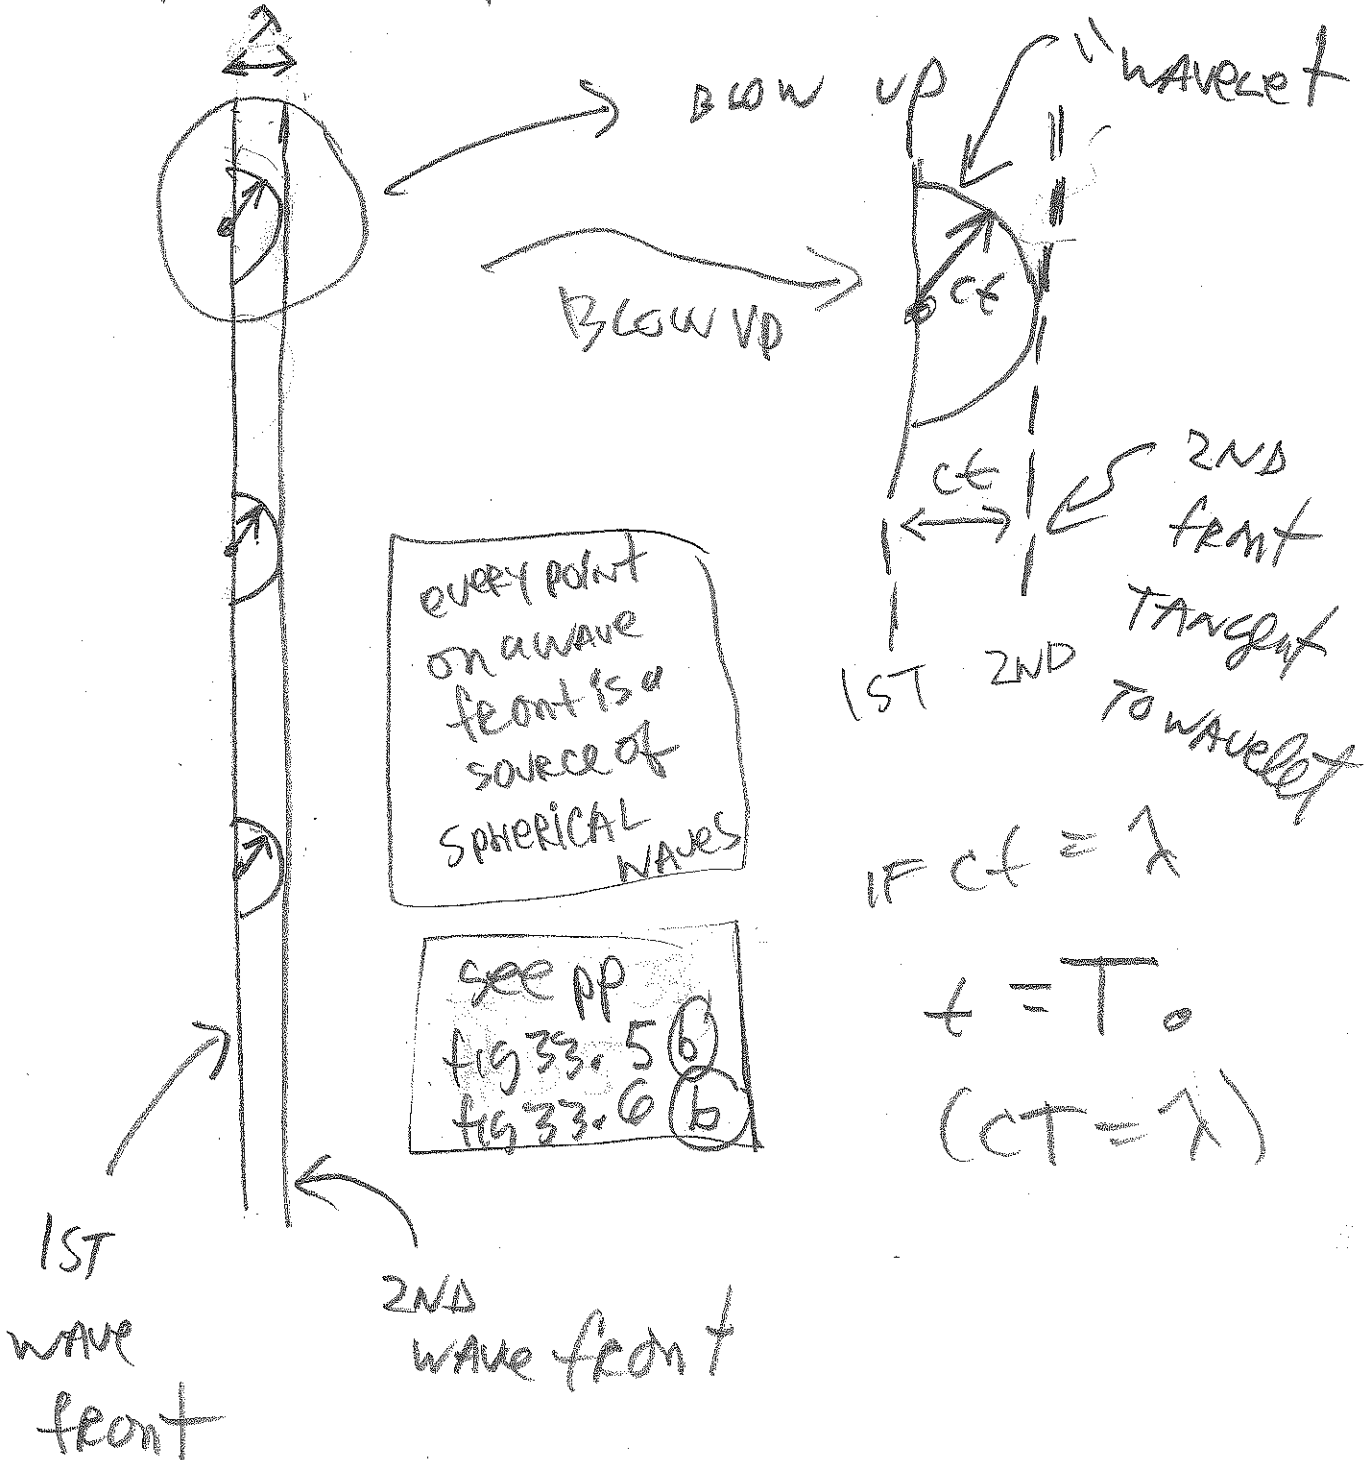 λ
BLOW UP
"WAVELET
BLOW UP
ct
ct
2ND
front
TANgent
TO WAVElet
1ST 2ND
every point
on a wave
front is a
source of
SPHERICAL
WAVES
IF ct = λ
t = T.
(CT = λ)
see pp
fig 33.5 b
fig 33.6 b
1ST
WAVE
front
2ND
WAVE front